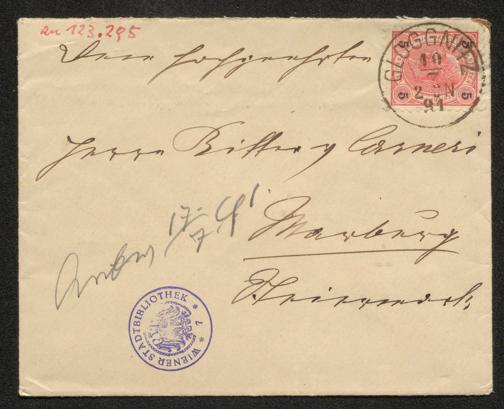 an 123.295
Dem hochgeehrten
Herrn Ritter v Carneri
Marburg
Steiermark.
5 5
5 5
GLOGGNITZ
10
7
2 N
91
17
7 91.
* WIENER STADTBIBLIOTHEK * 7